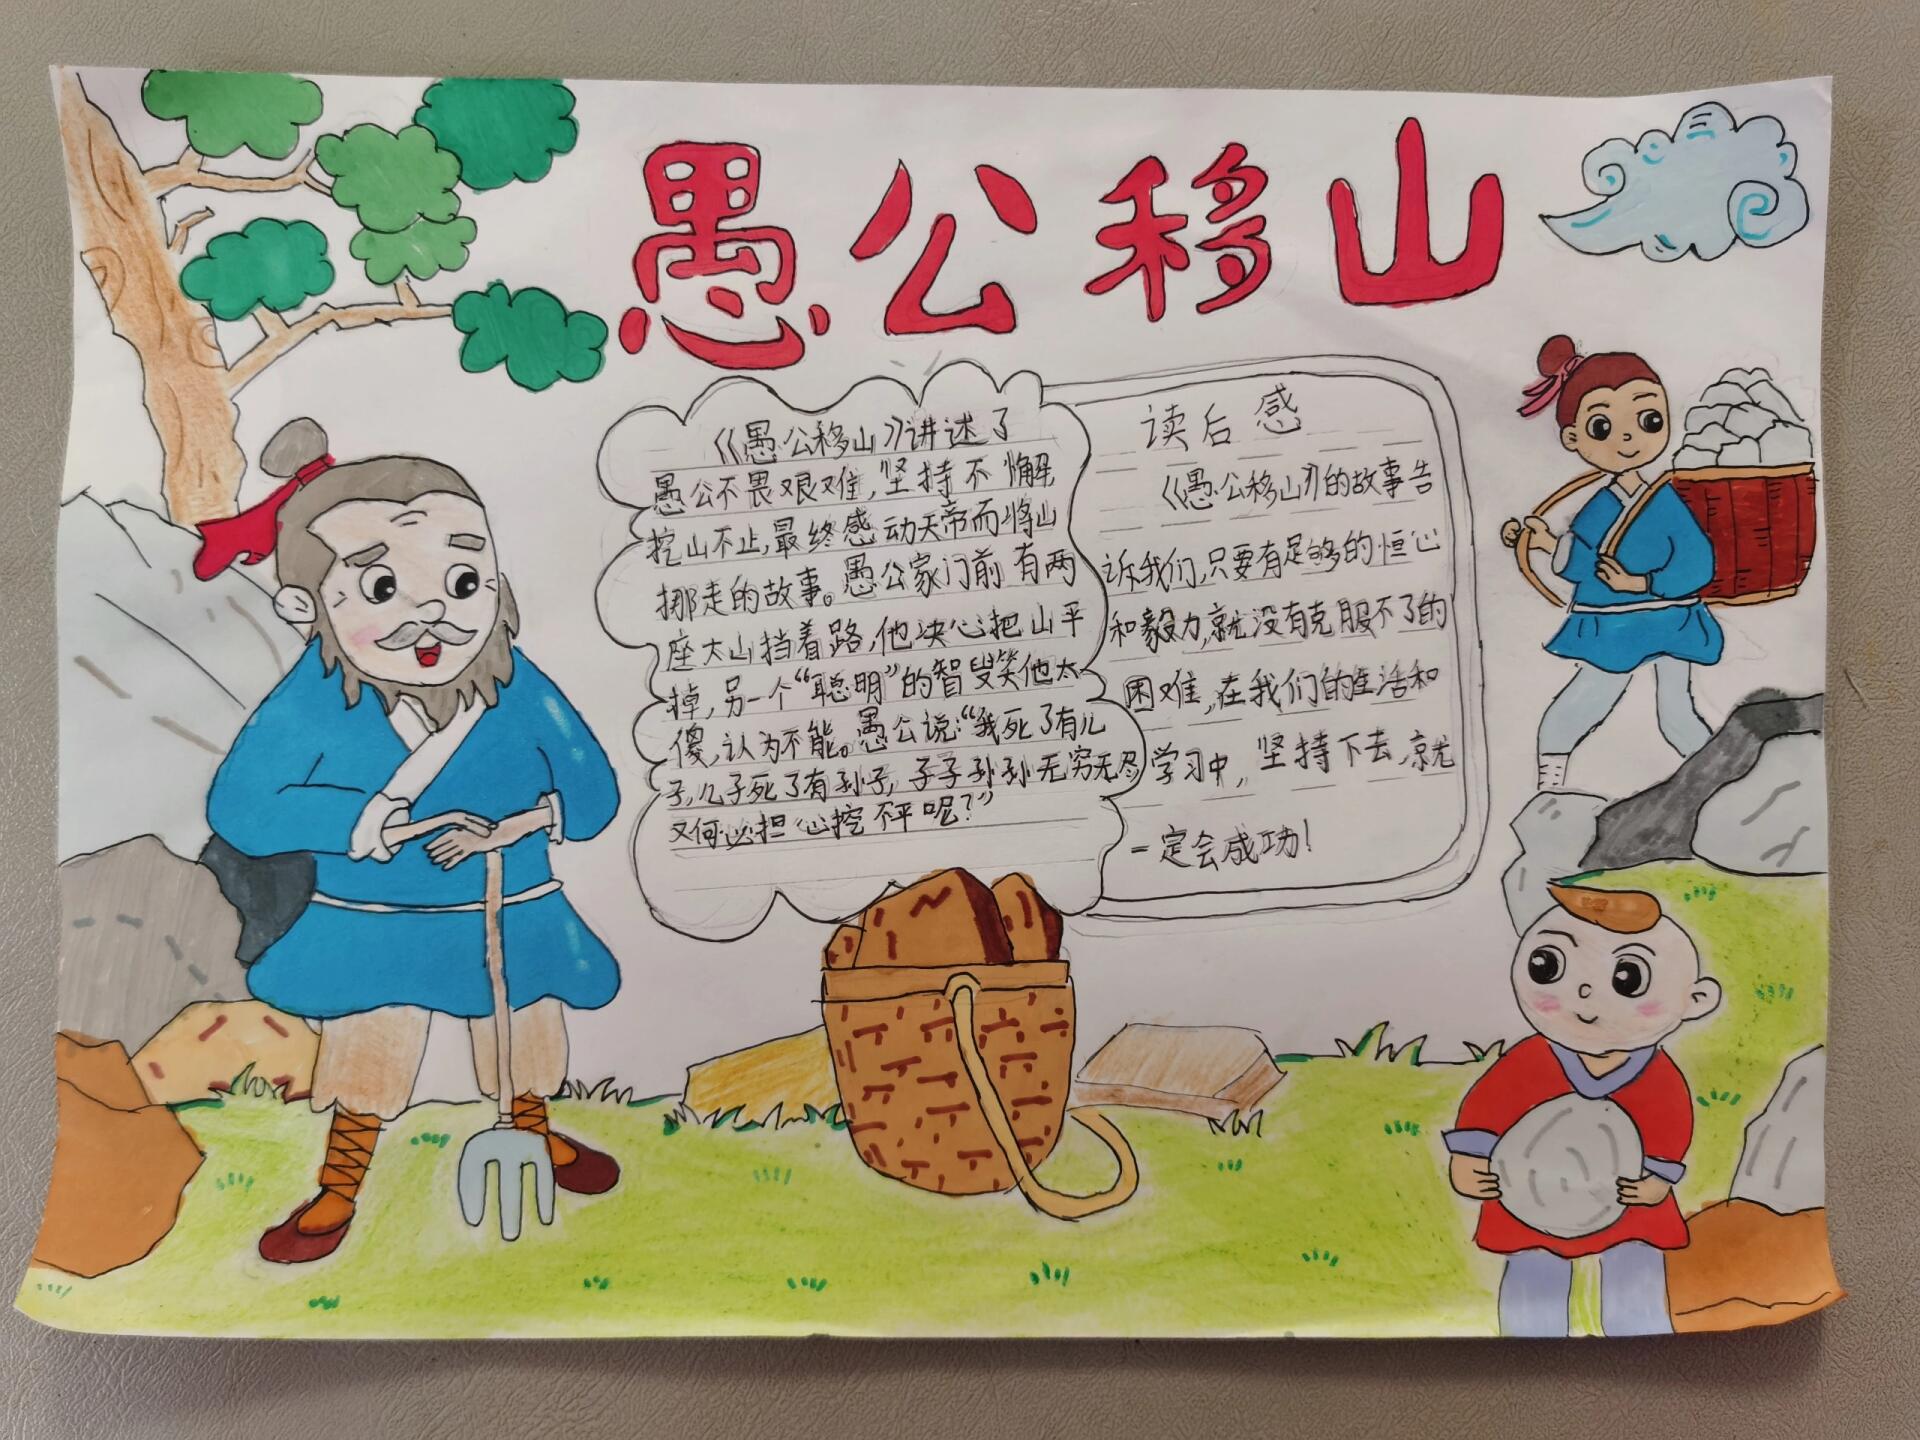 愚公移山
《愚公移山》讲述了
愚公不畏艰难,坚持不懈,
挖山不止,最终感动天帝而将山
挪走的故事。愚公家门前有两
座大山挡着路,他决心把山平
掉,另一个“聪明”的智叟笑他太
傻,认为不能。愚公说:“我死了有儿
子,儿子死了有孙子,子子孙孙无穷无尽
又何必担心挖不平呢?”
读后感
《愚公移山》的故事告
诉我们,只要有足够的恒心
和毅力,就没有克服不了的
困难,在我们的生活和
学习中,坚持下去,就
一定会成功!